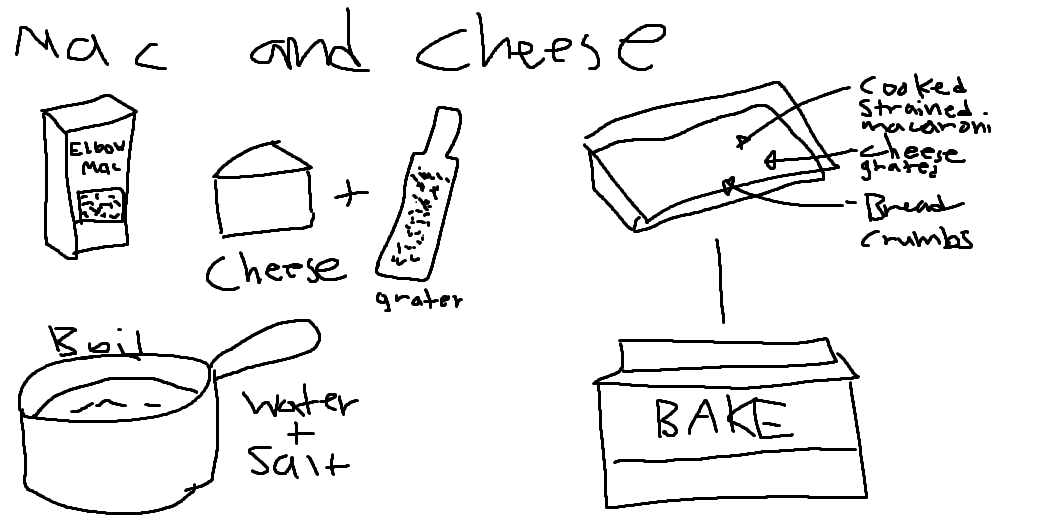 Mac and Cheese
Elbow
Mac
Cheese
+
grater
Boil
Water
+
Salt
Cooked
Strained.
macaroni
cheese
grated
Bread
crumbs
BAKE